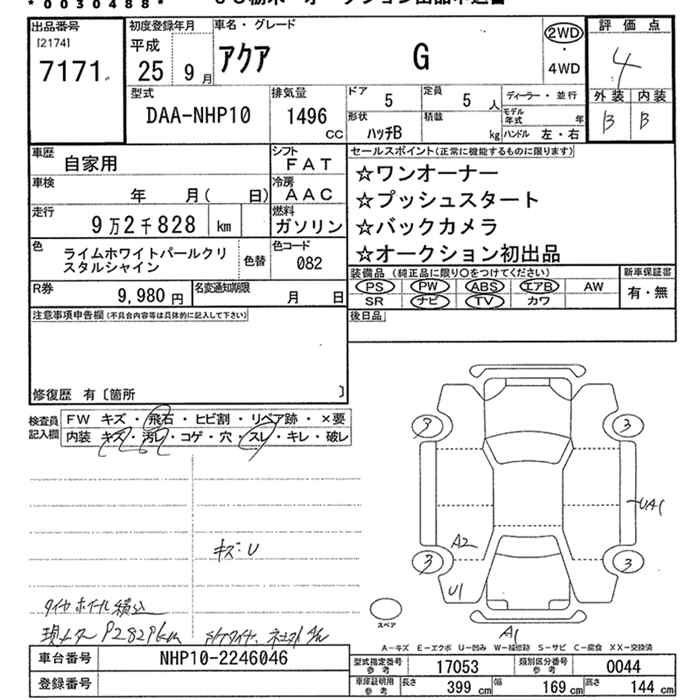 *0030488*
出品番号
[2174]
7171
初度登録年月
平成
25 9月
車名・グレード
アクア G
2WD
・
4WD
評価点
4
外装 内装
B B
型式
DAA-NHP10
排気量
1496
CC
ドア 5
定員 5 人
形状
ハッチB
積載 kg
ディーラー・並行
モデル年式 年
ハンドル 左・右
車歴 自家用
車検 年 月( 日)
走行 9万2千828 km
色 ライムホワイトパールクリスタルシャイン
色替
シフト
FAT
冷房
AAC
燃料
ガソリン
色コード
082
R券 9,980円
名変通知期限
月 日
セールスポイント(正常に機能するものに限ります)
☆ワンオーナー
☆プッシュスタート
☆バックカメラ
☆オークション初出品
装備品(純正品に限り〇をつけてください)
新車保証書
PS PW ABS エアB AW
SR ナビ TV カワ
有・無
後日品
注意事項申告欄(不具合内容等は具体的に記入して下さい)
修復歴 有〔箇所 〕
検査員
記入欄
FW キズ・飛石・ヒビ割・リペア跡・×要
内装 キズ・汚レ・コゲ・穴・スレ・キレ・破レ
キズ:U
タイヤホイール積込
3
3
3
3
UA1
A2
U1
A1
スペア
A-キズ E-エクボ U-凹み W-補修跡 S-サビ C-腐食 XX-交換済
車台番号 NHP10-2246046
登録番号
型式指定番号
参考
17053
類別区分番号
参考
0044
車庫証明用
参考
長さ 399 cm
幅 169 cm
高さ 144 cm